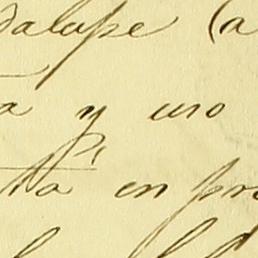 dalupe (a
a y uso
ta en pro